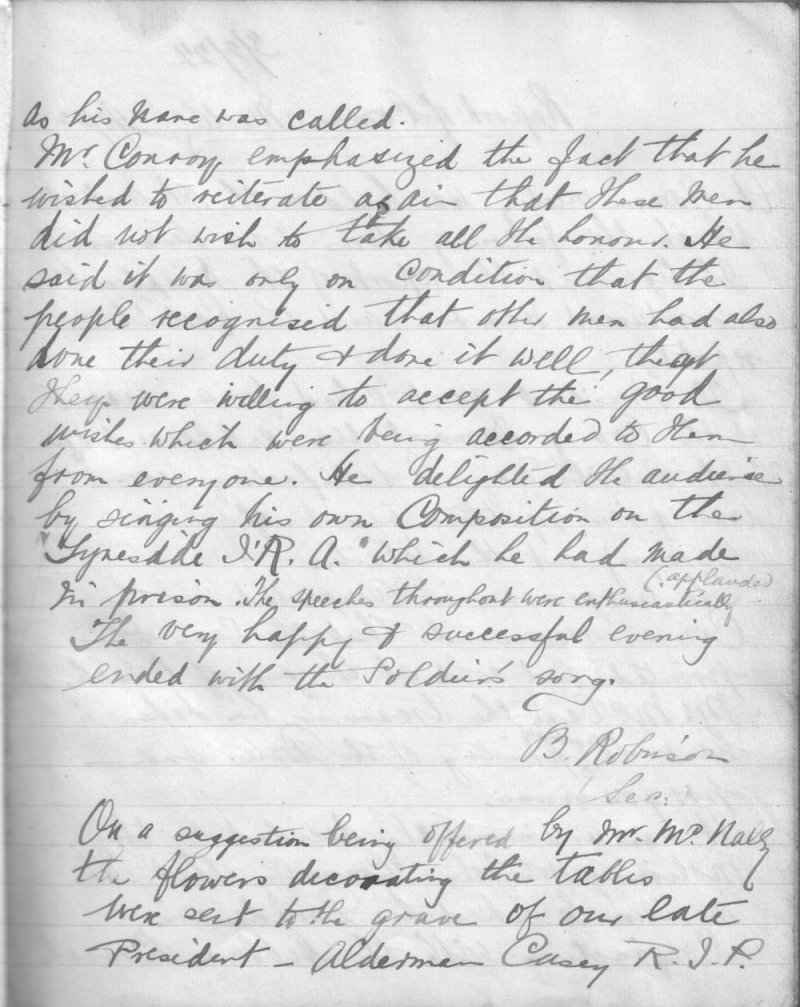 as his name was called.
Mr. Conroy emphasized the fact that he
wished to reiterate again that these men
did not wish to take all the honour. He
said it was only on condition that the
people recognised that other men had also
done their duty & done it well, that
they were willing to accept the good
wishes which were being accorded to them
from everyone. He delighted the audience
by singing his own Composition on the
"Tynesdide I.R.A." which he had made
in prison. The speeches throughout were enthusiastically
(applauded
The very happy & successful evening
ended with the Soldier's song.
B. Robinson
Sec:
On a suggestion being offered by Mr. McNally
the flowers decorating the tables
were sent to the grave of our late
President – Alderman Casey R.I.P.